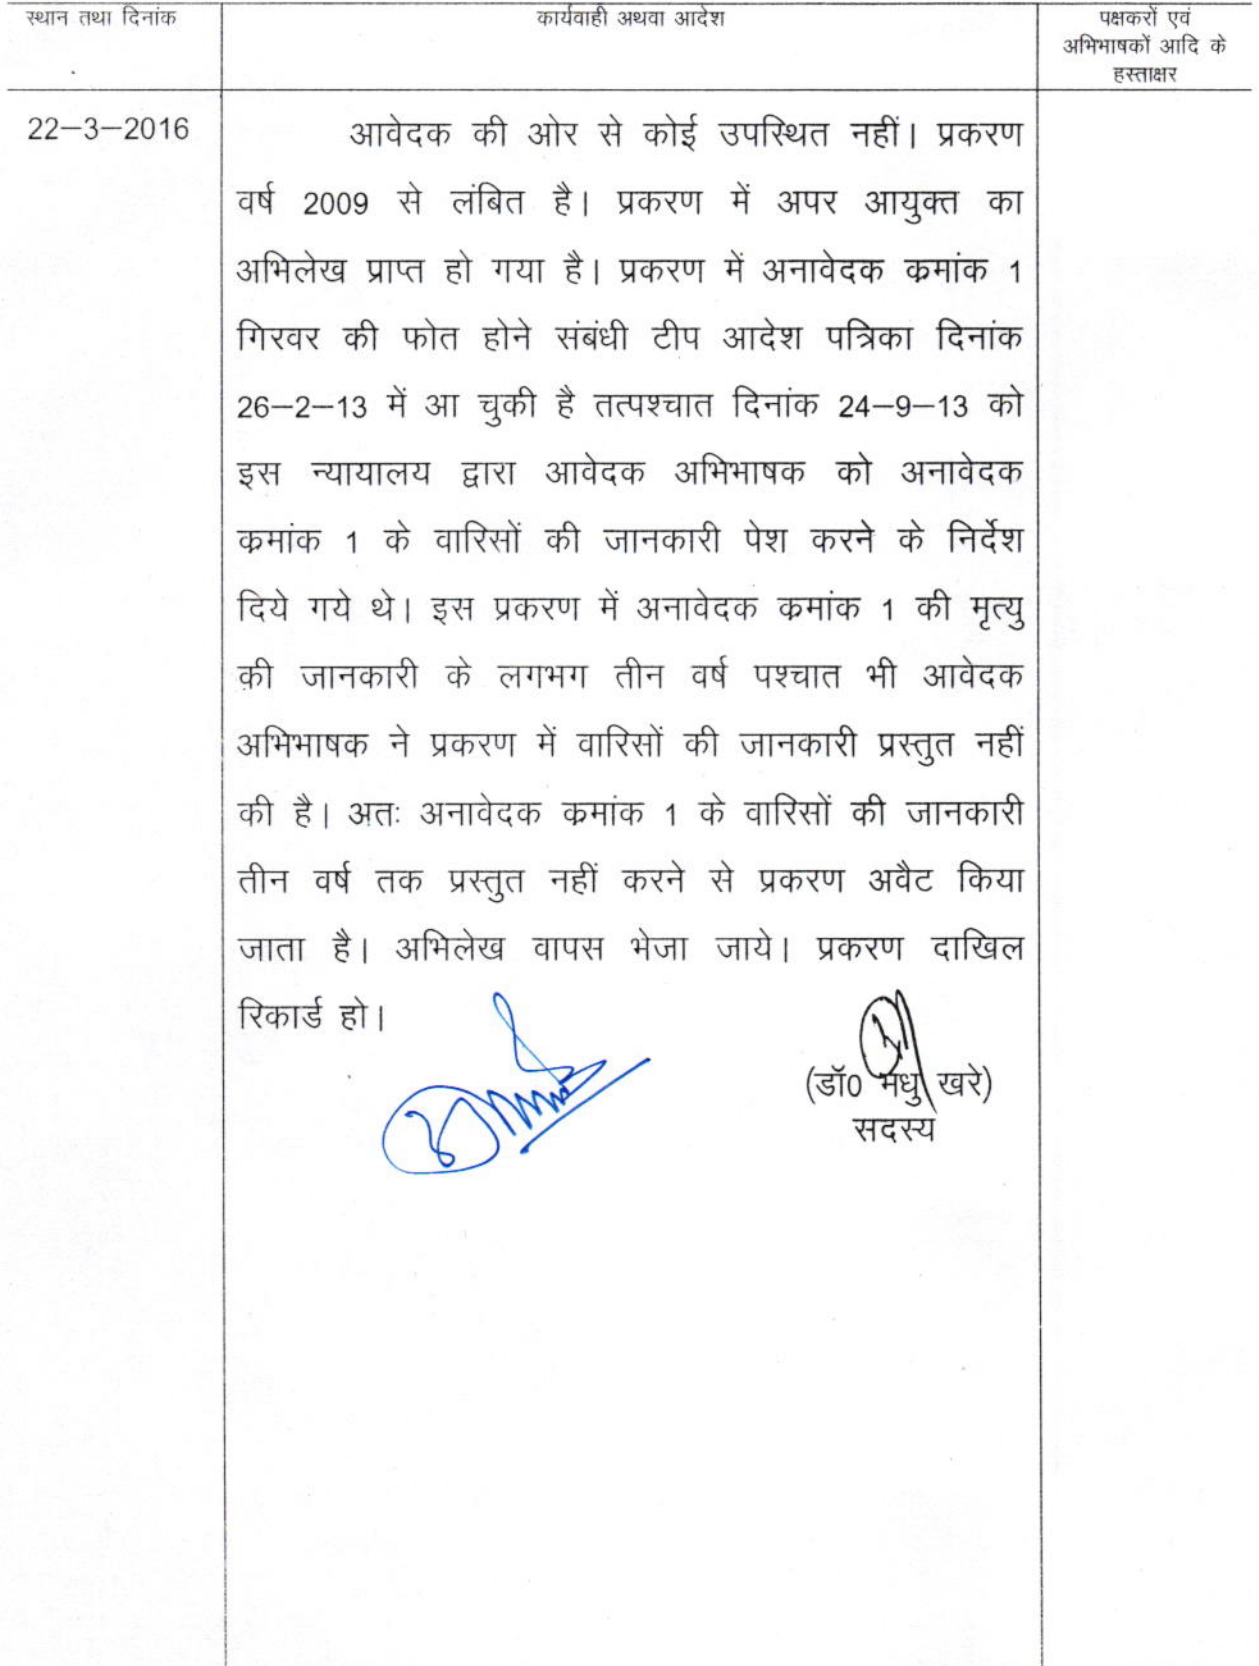 स्थान तथा दिनांक
कार्यवाही अथवा आदेश
पक्षकरों एवं
अभिभाषकों आदि के
हस्ताक्षर
22–3–2016
आवेदक की ओर से कोई उपस्थित नहीं। प्रकरण
वर्ष 2009 से लंबित है। प्रकरण में अपर आयुक्त का
अभिलेख प्राप्त हो गया है। प्रकरण में अनावेदक कमांक 1
गिरवर की फोत होने संबंधी टीप आदेश पत्रिका दिनांक
26–2–13 में आ चुकी है तत्पश्चात दिनांक 24–9–13 को
इस न्यायालय द्वारा आवेदक अभिभाषक को अनावेदक
कमांक 1 के वारिसों की जानकारी पेश करने के निर्देश
दिये गये थे। इस प्रकरण में अनावेदक कमांक 1 की मृत्यु
की जानकारी के लगभग तीन वर्ष पश्चात भी आवेदक
अभिभाषक ने प्रकरण में वारिसों की जानकारी प्रस्तुत नहीं
की है। अतः अनावेदक कमांक 1 के वारिसों की जानकारी
तीन वर्ष तक प्रस्तुत नहीं करने से प्रकरण अवैट किया
जाता है। अभिलेख वापस भेजा जाये। प्रकरण दाखिल
रिकार्ड हो।
(डॉ0 मधु खरे)
सदस्य